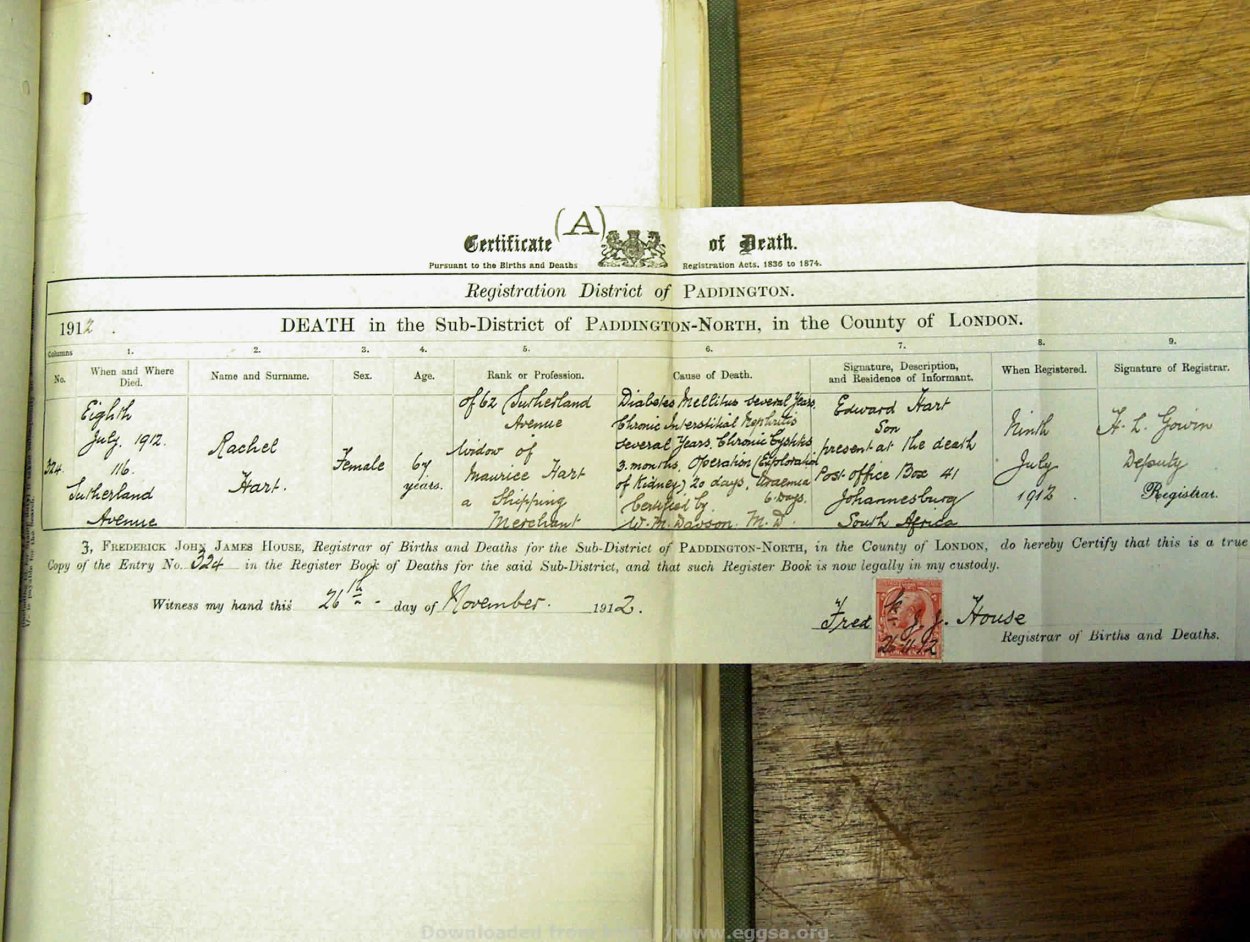 (A)
Certificate of Death.
Pursuant to the Births and Deaths Registration Acts, 1836 to 1874.
Registration District of PADDINGTON.
1912. DEATH in the Sub-District of PADDINGTON-NORTH, in the County of LONDON.
Columns 1. 2. 3. 4. 5. 6. 7. 8. 9.
No.
When and Where
Died.
Name and Surname.
Sex.
Age.
Rank or Profession.
Cause of Death.
Signature, Description,
and Residence of Informant.
When Registered.
Signature of Registrar.
324
Eighth
July. 1912.
116.
Sutherland
Avenue
Rachel
Hart.
Female
67
years.
of 62 Sutherland
Avenue
Widow of
Maurice Hart
a Shipping
Merchant
Diabetes Mellitus several years,
Chronic Interstitial Nephritis
several years. Chronic Cystitis
3. months. Operation (Exploration
of Kidney) 20 days, Uraemia
6 days.
Certified by
W. M. Davson. M. D.
Edward Hart
Son
present at the death
Post Office Box 41
Johannesburg
South Africa
Ninth
July
1912.
H. L. Gowin
Deputy
Registrar.
I, FREDERICK JOHN JAMES HOUSE, Registrar of Births and Deaths for the Sub-District of PADDINGTON-NORTH, in the County of LONDON, do hereby Certify that this is a true
Copy of the Entry No. 324 in the Register Book of Deaths for the said Sub-District, and that such Register Book is now legally in my custody.
Witness my hand this 26th day of November. 1912.
Fred k J. J. House
26.11.12
Registrar of Births and Deaths.
Downloaded from http://www.eggsa.org